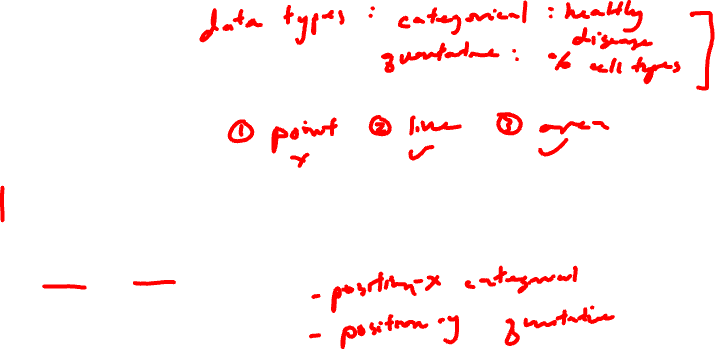 data types : categorical : healthy
disease
quantative : % cell types
① point ② line ③ area
- position-x categorical
- position-y quantative